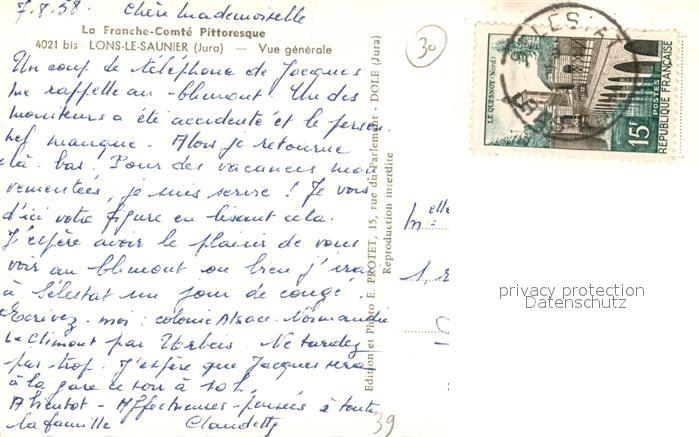 7.8.58. Chère Mademoiselle
La Franche-Comté Pittoresque
4021 bis - LONS-LE-SAUNIER (Jura) — Vue générale
Un coup de téléphone de Jacques
me rappelle au Climont. Un des
moniteurs a été accidenté et le person
nel manque. Alors je retourne
là-bas. Pour des vacances mou
vementées, je suis servie ! Je vois
d'ici votre figure en lisant cela.
J'espère avoir le plaisir de vous
voir au Climont ou bien j'irai
à Sélestat un jour de congé.
Ecrivez-moi : colonie Alsace-Normandie
Le Climont par Urbeis. Ne tardez
pas trop. J'espère que Jacques sera
à la gare ce soir à 20h.
A bientôt - Affectueuses pensées à toute
la famille Claudette
Edition et Photo E. PROTET, 15, rue du Parlement - DOLE (Jura)
Reproduction interdite
30
LE QUESNOY (Nord)
15F
POSTES
REPUBLIQUE FRANÇAISE
Melle
privacy protection
Datenschutz
39